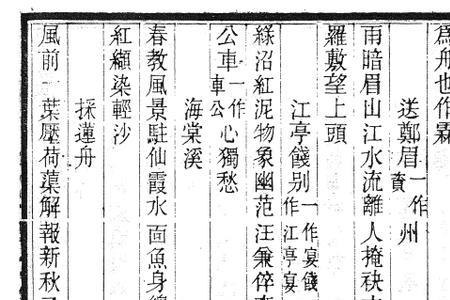 爲舟也作霖
送鄭眉一作賁州
雨暗眉山江水流離人掩袂
羅敷望上頭
江亭餞别一作宴餞作江亭宴
綠沼紅泥物象幽范汪兼倅
公車一作車公心獨愁
海棠溪
春教風景駐仙霞水面魚身總
紅纈染輕沙
採蓮舟
風前一葉壓荷蕖解報新秋又